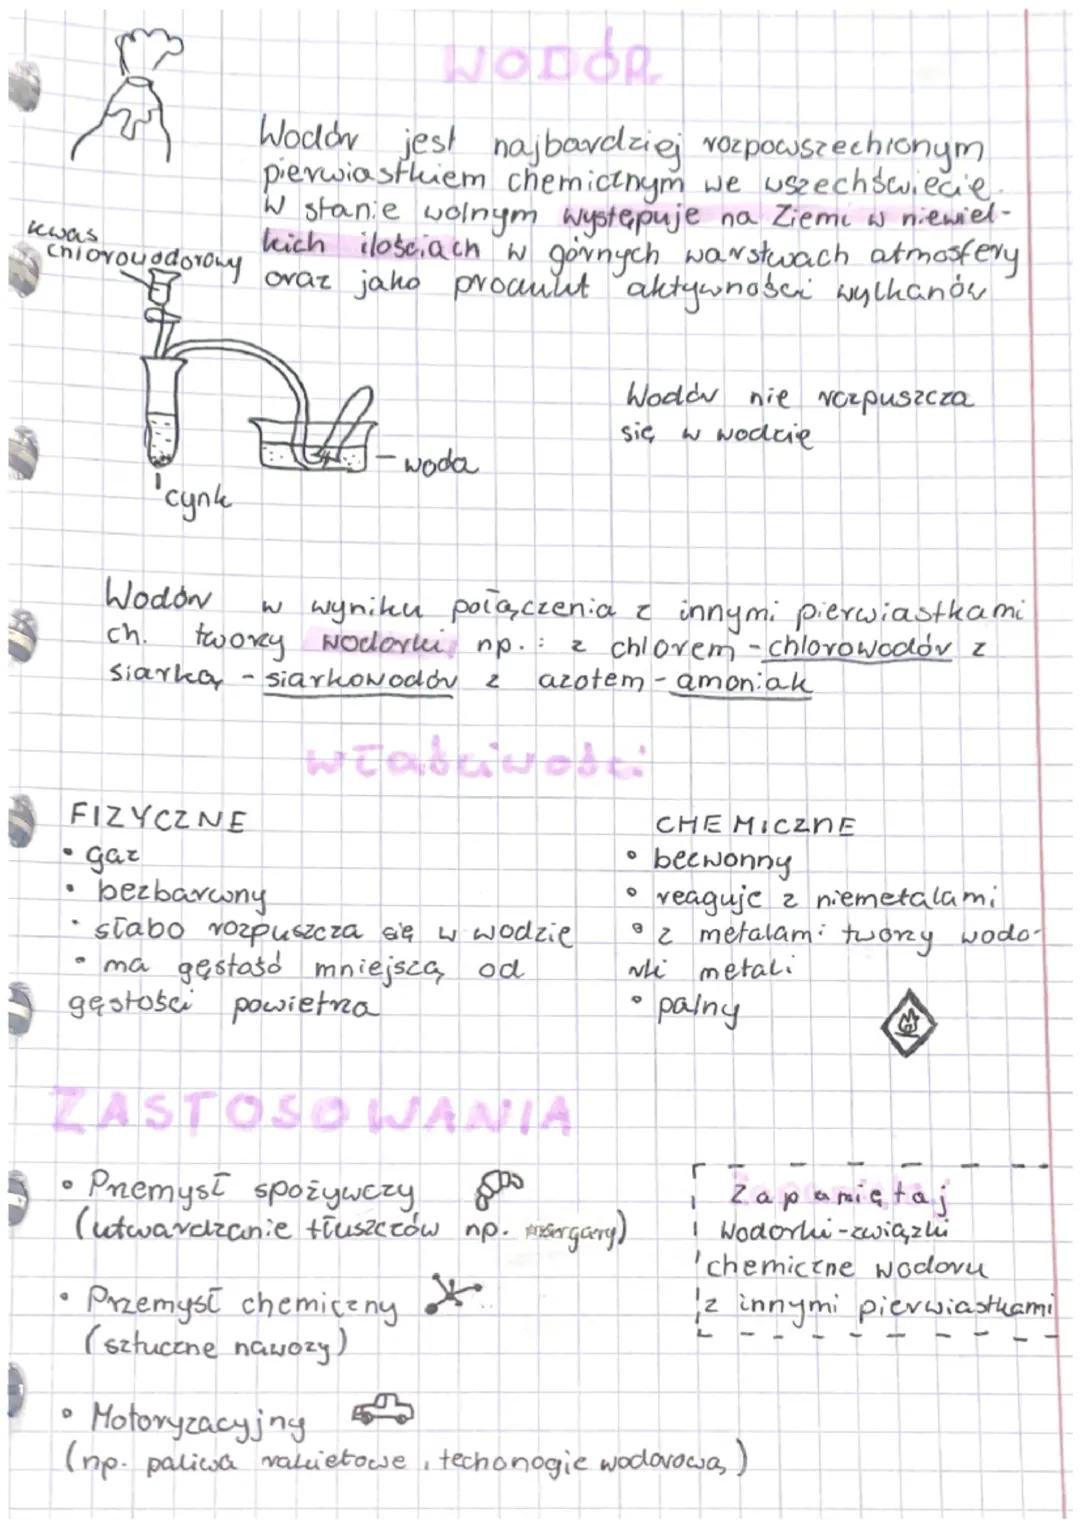 WODÓR
Wodór jest najbardziej rozpowszechionym
pierwiastkiem chemicznym we wszechświecie.
W stanie wolnym występuje na Ziemi w niewiel-
kich ilościach w górnych warstwach atmosfery
oraz jako produkt aktywności wylkanów
kwas
chlorowodorowy
Wodór nie rozpuszcza
się w wodzie
woda
cynk
Wodór w wyniku połączenia z innymi pierwiastkami
ch. tworzy wodorki np.: z chlorem - chlorowodór z
siarką - siarkowodór z azotem - amoniak
właściwości
FIZYCZNE
• gaz
• bezbarwny
• słabo rozpuszcza się w wodzie
• ma gęstość mniejszą od
gęstości powietrza
CHEMICZNE
• bezwonny
• reaguje z niemetalami
• z metalami tworzy wodo-
rki metali
• palny
ZASTOSOWANIA
• Przemysł spożywczy
(utwardzanie tłuszczów np. margary)
• Przemysł chemiczny
(sztuczne nawozy)
• Motoryzacyjny
(np. paliwa rakietowe, techonogie wodorową)
Zapamiętaj
Wodorki - związki
chemiczne wodoru
z innymi pierwiastkami